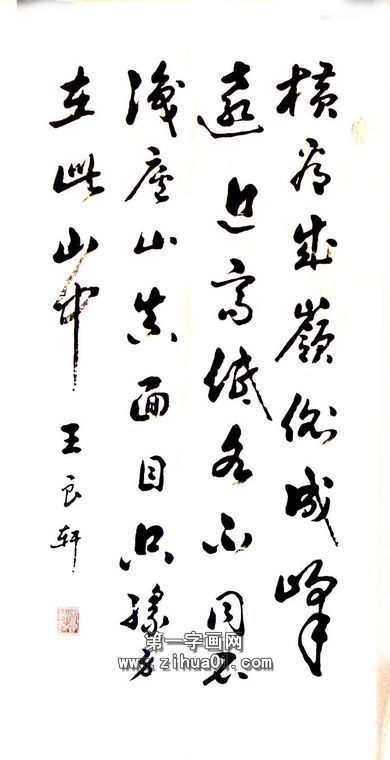 横看成嶺側成峰
遠近高低各不同不
識廬山真面目只緣身
在此山中 王良轩
第一字画网
www.zihua01.com